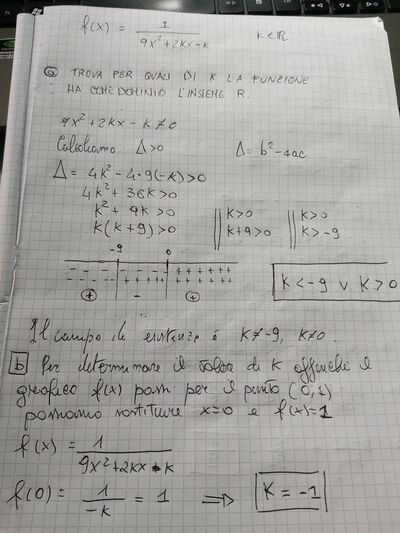 f(x) = 1 / 9x² + 2kx - k   k ∈ ℝ
a TROVA PER QUALI DI K LA FUNZIONE
HA COME DOMINIO L'INSIEME R.
9x² + 2kx - k ≠ 0
Calcoliamo Δ>0   Δ = b² - 4ac
Δ = 4k² - 4·9(-k) > 0
4k² + 36k > 0
k² + 9k > 0
k(k+9) > 0   || k>0 || k>0
k+9>0   k>-9
-9   0
- - - - | - - - - | + + + + +
- - - - | + + + + | + + + + +
+   -   +
k < -9 ∨ k > 0
Il campo di esistenza è k ≠ -9, k ≠ 0.
b Per determinare il valore di k affinché il
grafico f(x) passi per il punto (0,1)
possiamo sostituire x=0 e f(x)=1
f(x) = 1 / 9x² + 2kx - k
f(0) = 1 / -k = 1 ⇒ k = -1